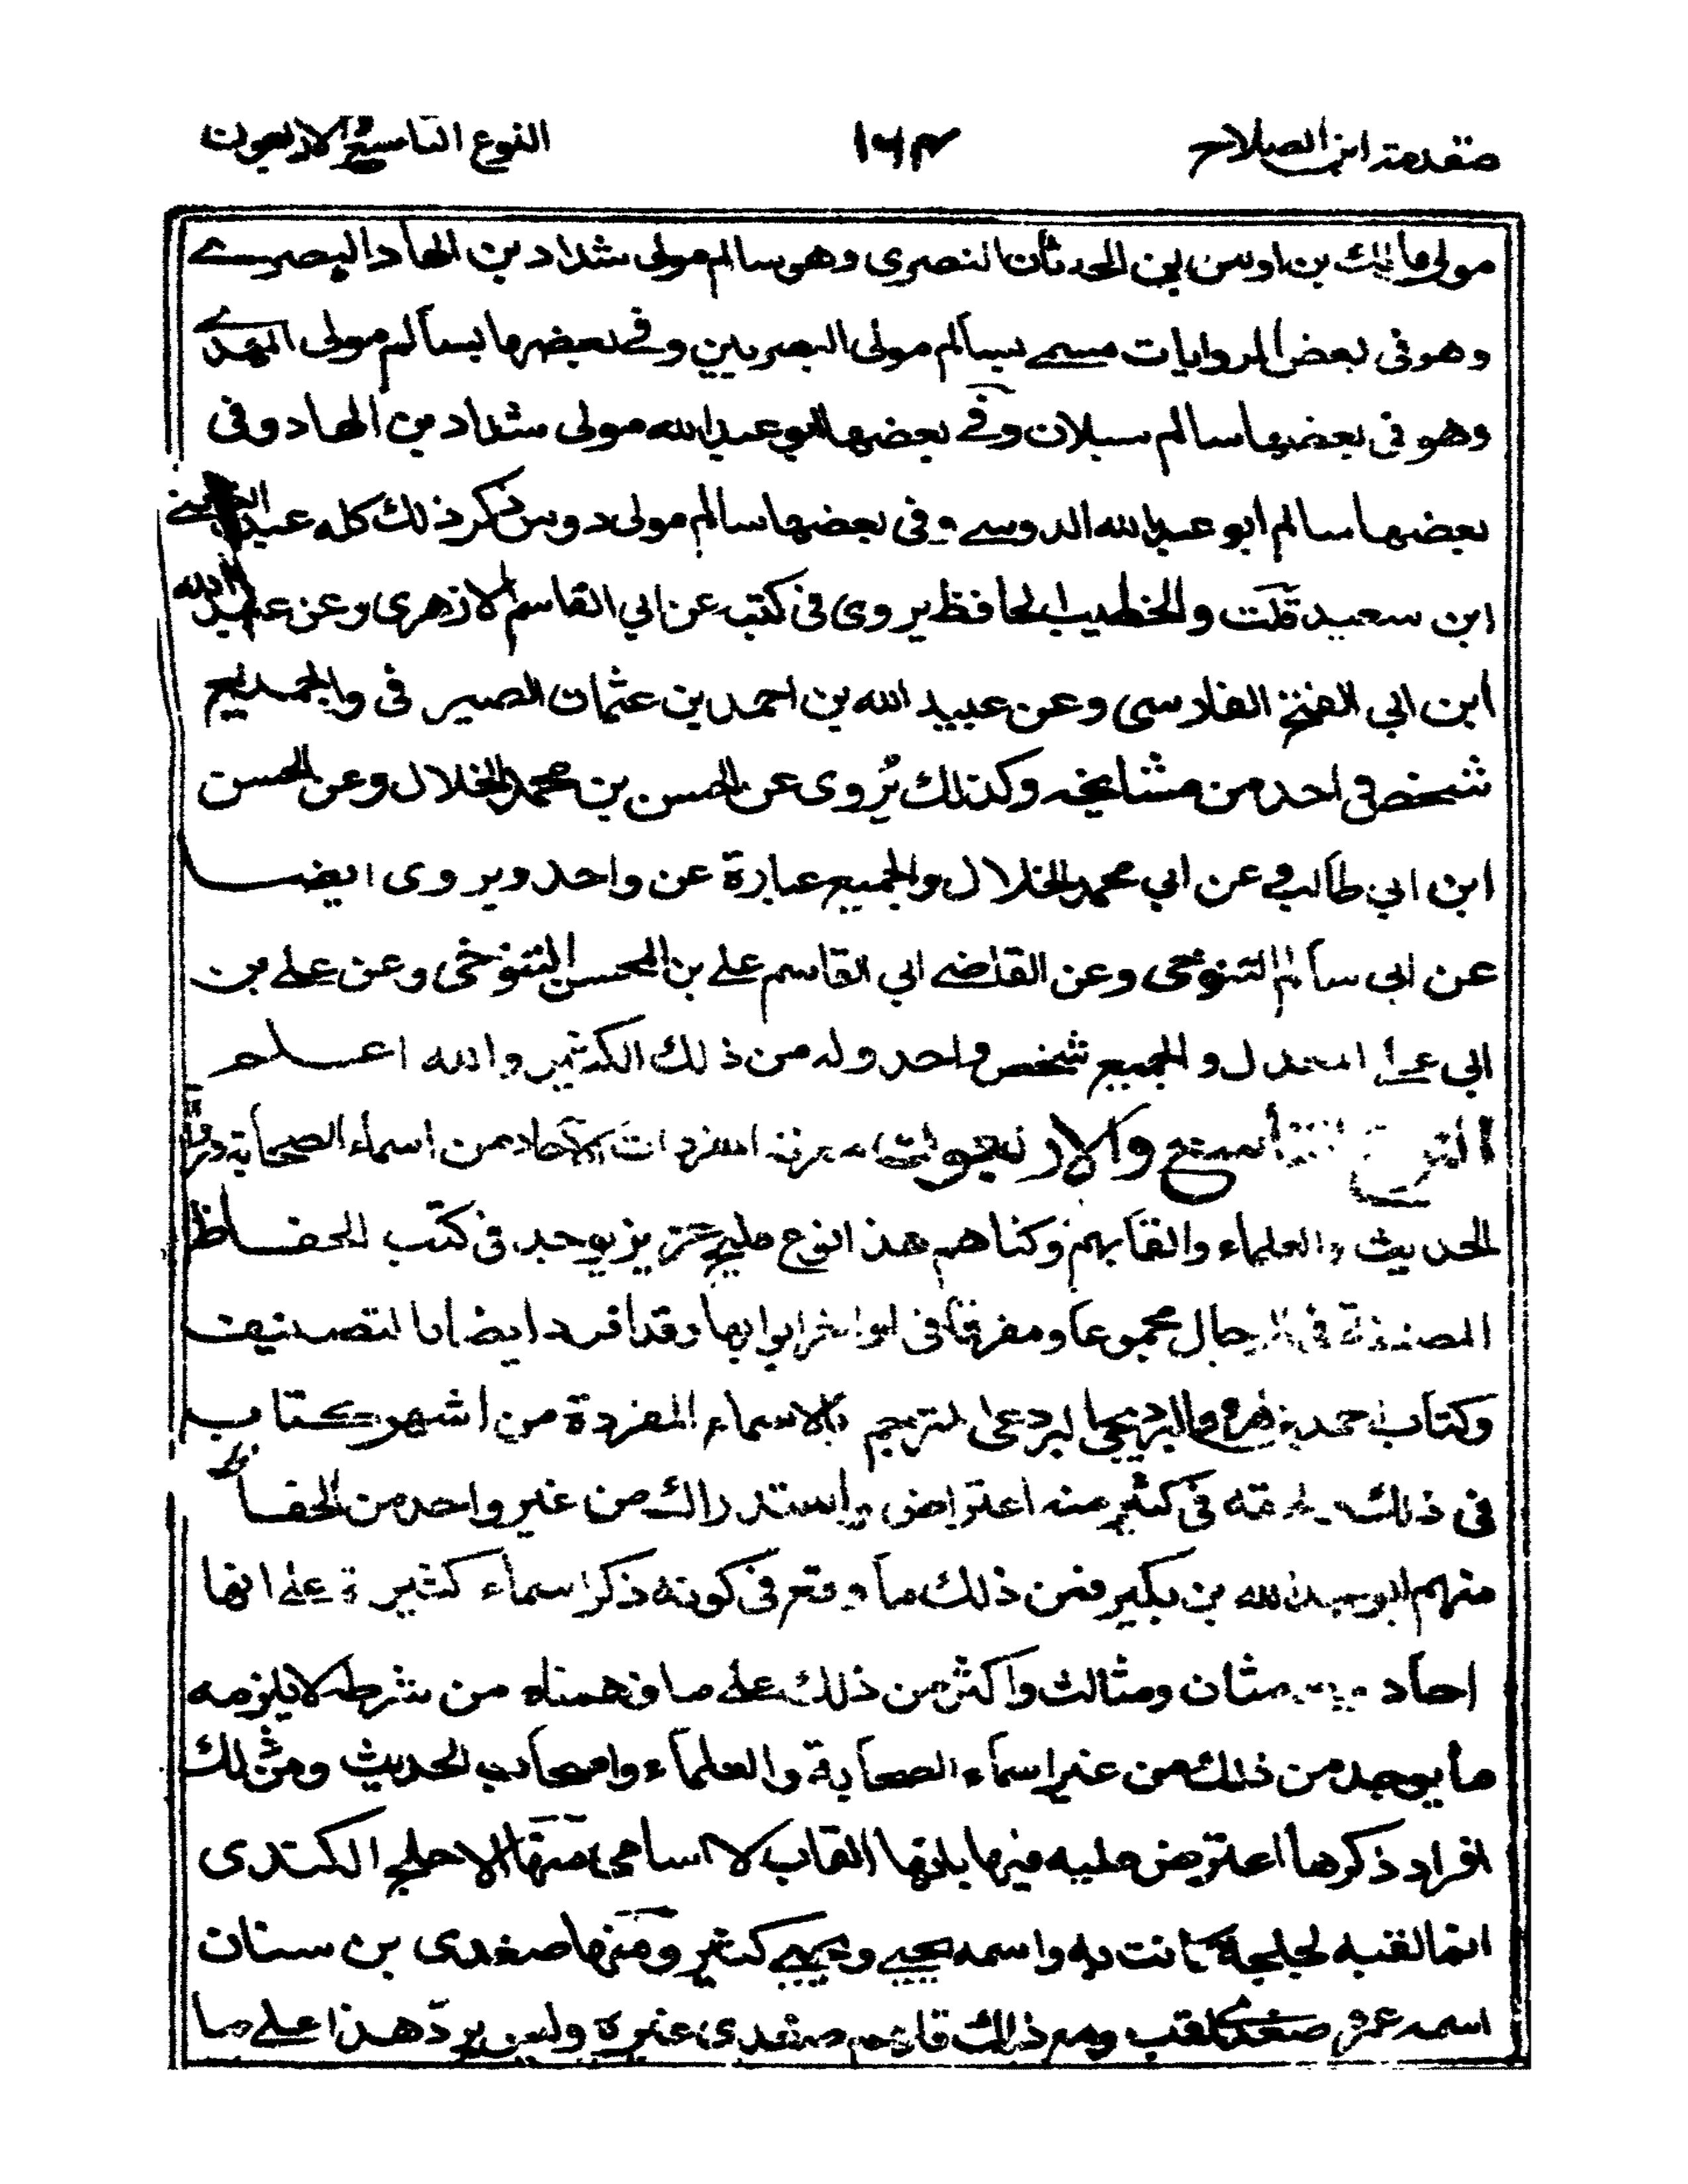 مقدمة ابن الصلاح ١٦٣ النوع التاسع والاربعون
مولى مالك بن اوس بن الحدثان النصري وهو سالم مولى شداد بن الهاد البصرے
وهو فى بعض الروايات مسمے بسالم مولى البصريين وفے بعضها بسالم مولى المهدے
وهو فى بعضها سالم سبلان وفے بعضها ابو عبد الله مولى شداد من الهاد وفى
بعضها سالم ابو عبد الله الدوسے وفى بعضها سالم مولى دوس ذكر ذلك كله عبد الغنے
ابن سعيد قلت والخطيب الحافظ يروى فى كتبه عن ابي القاسم الازهرى وعن عبيد الله
ابن ابي الفتح الفارسى وعن عبيد الله بن احمد بن عثمان الصيرفى والجميع
شخص فى احد من مشايخه وكذلك يروى عن الحسن بن محمد الخلال وعن الحسن
ابن ابي طالب وعن ابي محمد الخلال والجميع عبارة عن واحد ويروى ايضا
عن ابى سالم التنوخى وعن القاضے ابي القاسم علے بن المحسن التنوخى وعن علے بن
ابي علے المعدل والجميع شخص واحد وله من ذلك الكثير والله اعلم
النوع التاسع والاربعون معرفة المفردات الآحاد من اسماء الصحابة ورواة
الحديث والعلماء والقابهم وكناهم هذا نوع مليح عزيز يوجد فى كتب الحفاظ
المصنفة فى الرجال مجموعا ومفرقا فى اواخر ابوابها وقد افرد ايضا بالتصنيف
وكتاب احمد بن هرون البرديجى البردعى المترجم بالاسماء المفردة من اشهر كتاب
فى ذلك ولحقه فى كثير منه اعتراض واستدراك من غير واحد من الحفاظ
منهم ابو عبد الله بن بكير فمن ذلك ما وقع فى كونه ذكر اسماء كثيرة علے انها
احاد مثان ومثالث واكثر من ذلك علے ما فهمناه من شرطه لا يلزمه
ما يوجد من ذلك من غير اسماء الصحابة والعلماء واصحاب الحديث ومن ذلك
افراد ذكرها اعترض عليه فيها بانها القاب لا اسامى منها الاجلح الكندى
انما لقبه لجلحة كانت به واسمه يحيے ويحيے كثير ومنها صغدى بن سنان
اسمه عمر وصغدى لقب ومع ذلك فلهم صغدى غيره وليس يرد هذا علے ما